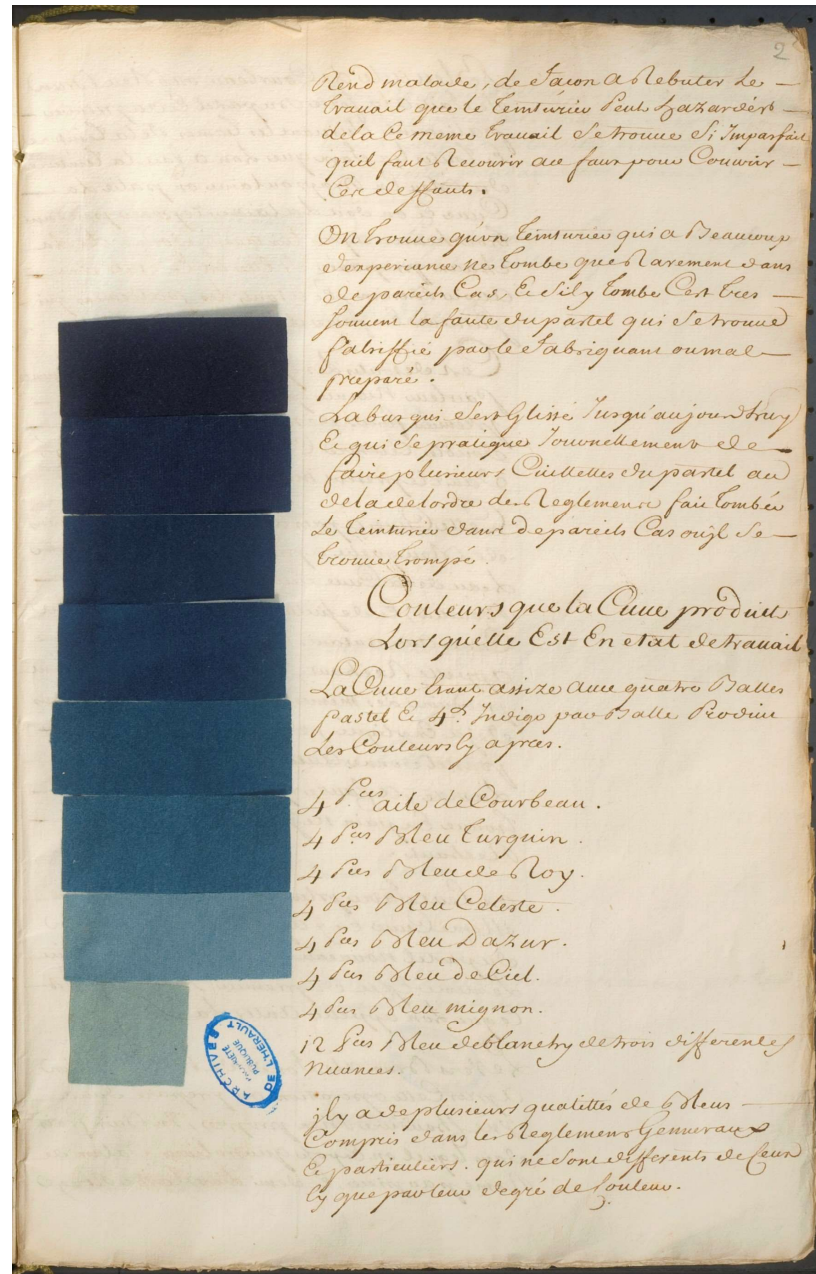 2
Rend malade, de facon a Rebuter Le
travail que le Teinturier Peut hazarder
dela Ce meme travail Se trouve Si Imparfait
quil faut Recourir au faux pour Couvrir
Ces deffauts.
On trouve qu'un teinturier qui a Beaucoup
dexperiance ne tombe que Rarement dans
de pareils Cas, Et Sil y tombe Cest tres
Souvent la faute du pastel qui Se trouve
falsiffié par le fabriquant ou mal
preparé.
Labus qui Sest Glissé Jusqu'aujourdhuy
Et qui Se pratique Journellement de
faire plusieurs Cuillettes du pastel au
dela de lordre des Reglements fait tomber
Le teinturier dans de pareils Cas ou jl Se
trouve trompé.
Couleurs que la Cuve produit
Lors qu'elle Est En etat de travail
La Cuve Etant assize avec quatre Balles
pastel Et 4 l. Indigo par Balle Produit
Les Couleurs Cy apres.
4 Pces aile de Courbeau.
4 Pces Bleu turquin.
4 Pces Bleu de Roy.
4 Pces Bleu Celeste.
4 Pces Bleu Dazur.
4 Pces Bleu de Ciel.
4 Pces Bleu mignon.
12 Pces Bleu de blanchy de trois differentes
Nuances.
jl y a de plusieurs qualittés de Bleus
Compris dans les Reglements Genneraux
Et particuliers. qui ne Sont differents de Ceux
Cy que par leur degré de Couleur.
ARCHIVES DE L'HERAULT
PROPRIÉTÉ
PUBLIQUE